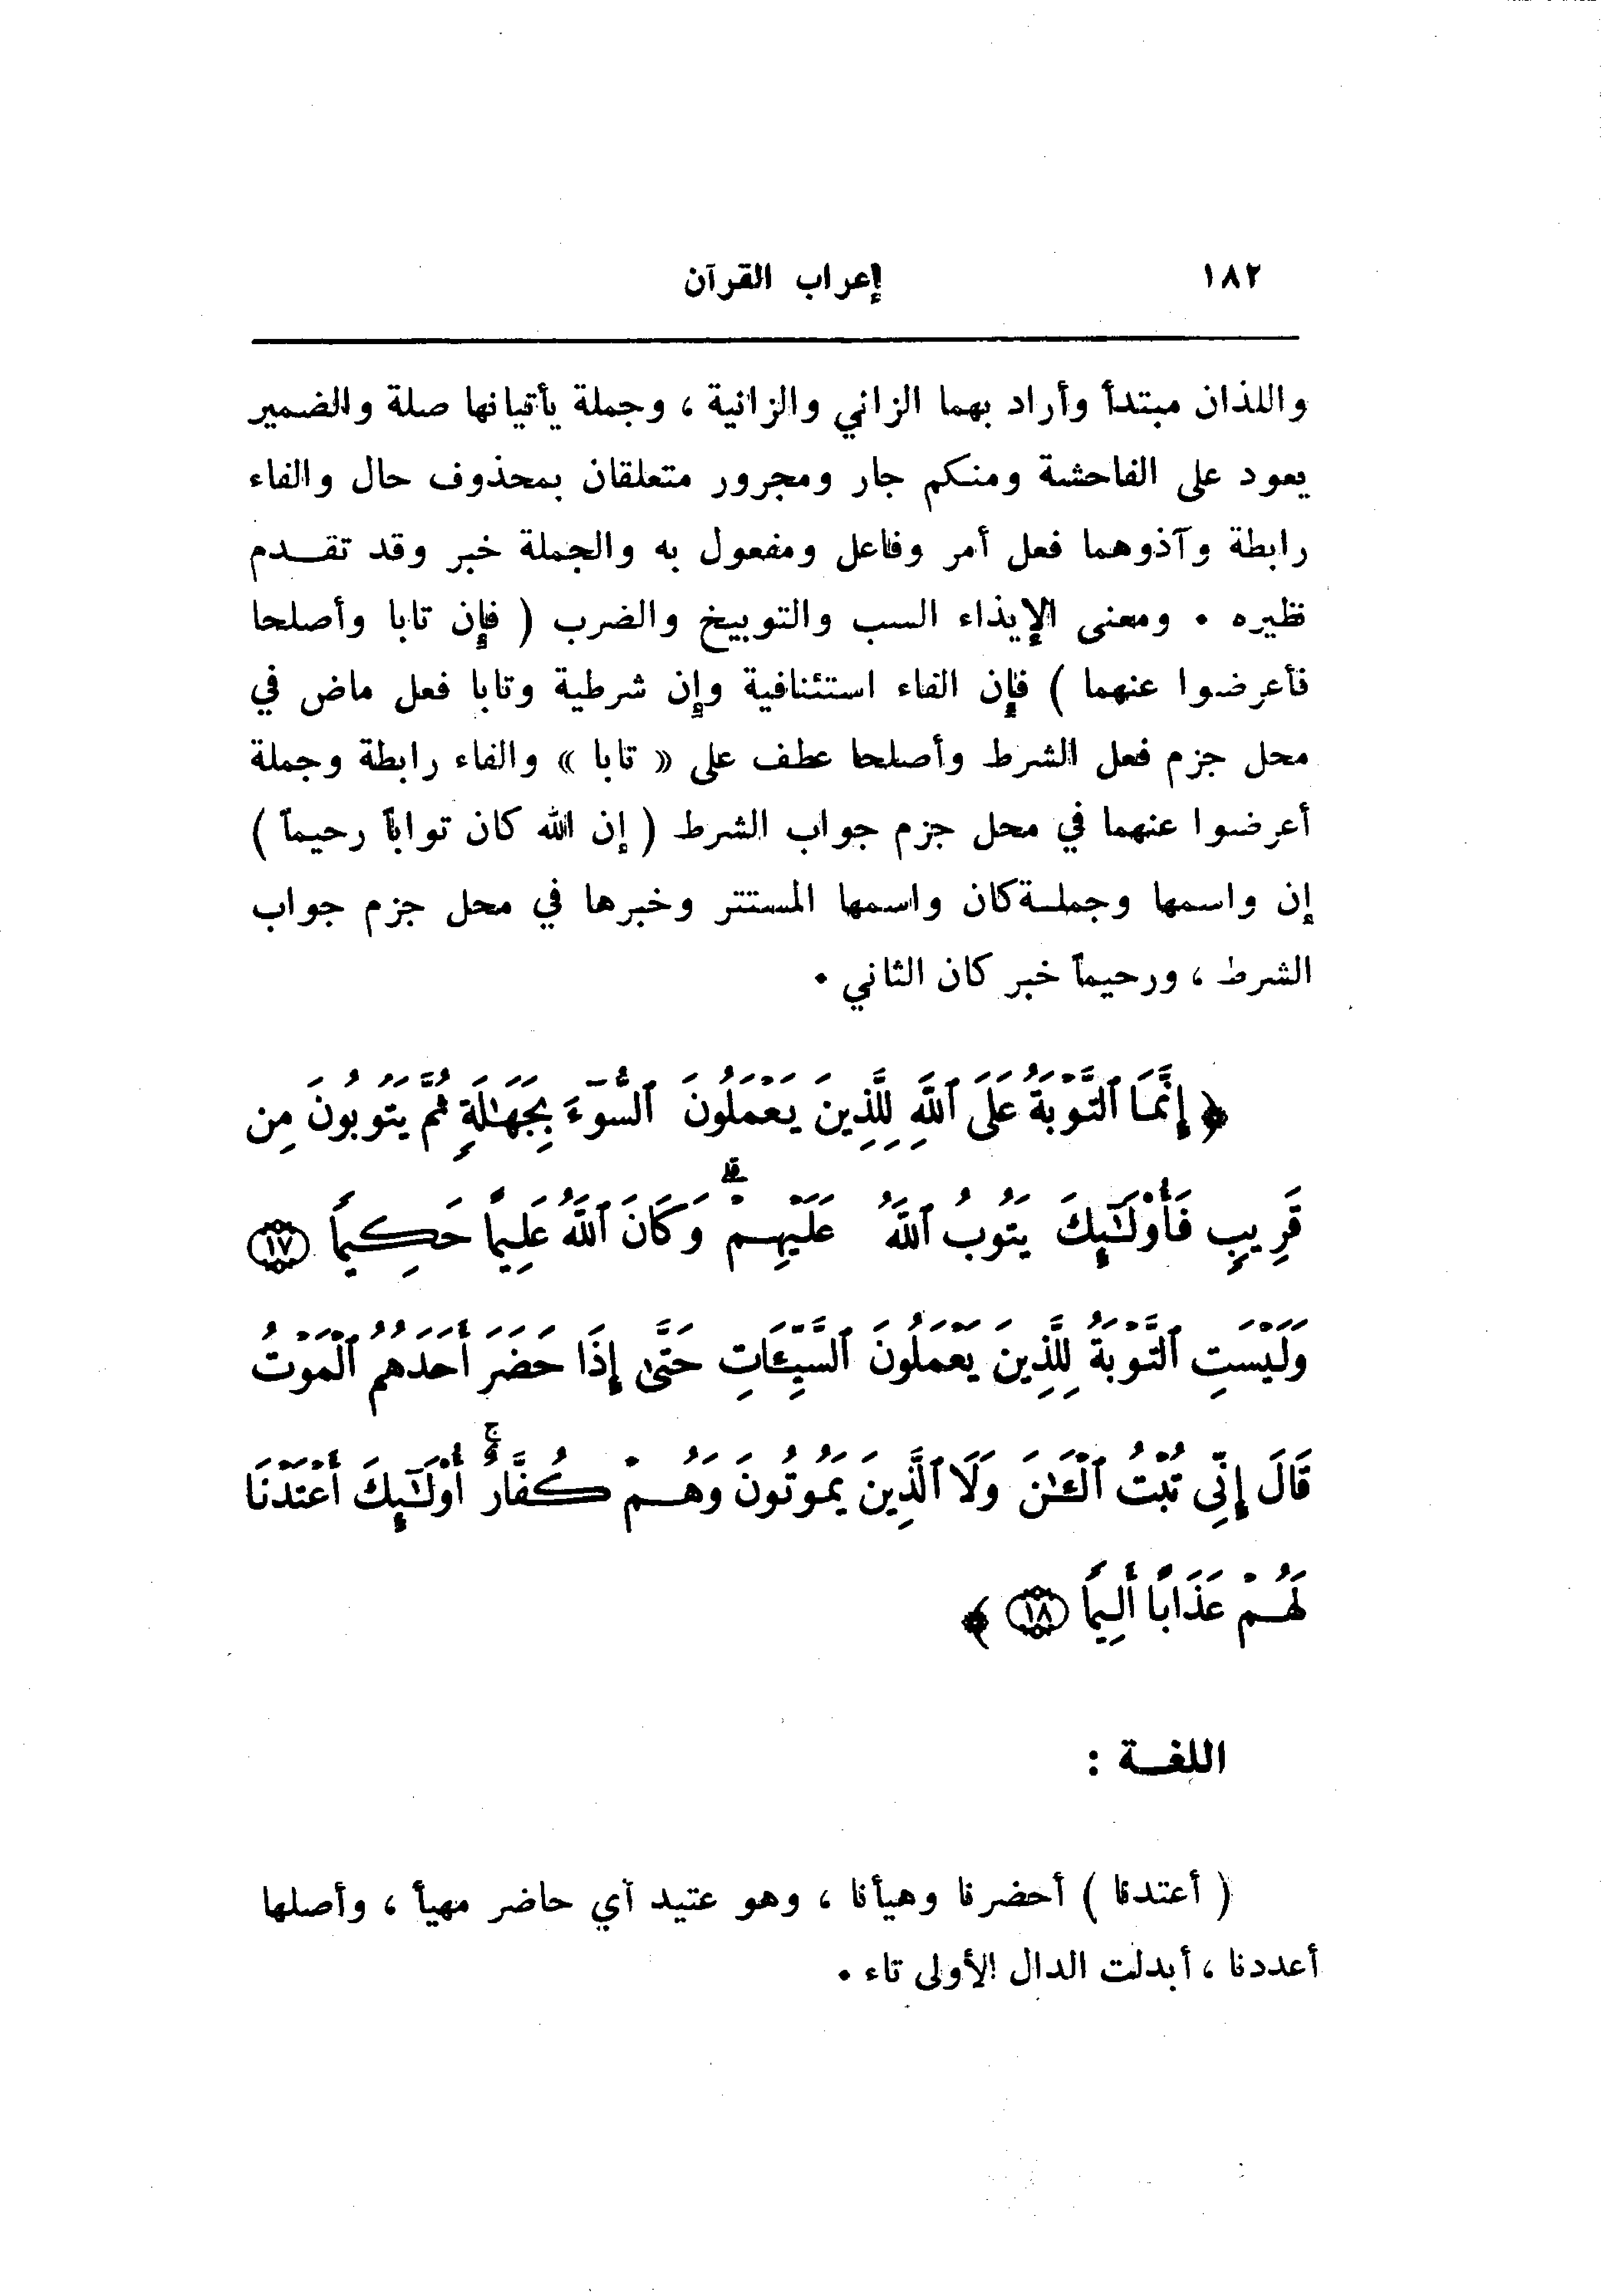 ١٨٢ إعراب القرآن
واللذان مبتدأ وأراد بهما الزاني والزانية ، وجملة يأتيانها صلة والضمير
يعود على الفاحشة ومنكم جار ومجرور متعلقان بمحذوف حال والفاء
رابطة وآذوهما فعل أمر وفاعل ومفعول به والجملة خبر وقد تقـدم
نظيره • ومعنى الإيذاء السب والتوبيخ والضرب ( فإن تابا وأصلحا
فأعرضوا عنهما ) فإن الفاء استئنافية وإن شرطية وتابا فعل ماض في
محل جزم فعل الشرط وأصلحا عطف على « تابا » والفاء رابطة وجملة
أعرضوا عنهما في محل جزم جواب الشرط ( إن الله كان تواباً رحيماً )
إن واسمها وجملـة كان واسمها المستتر وخبرها في محل جزم جواب
الشرط ، ورحيماً خبر كان الثاني •
﴿ إِنَّمَا ٱلتَّوْبَةُ عَلَى ٱللَّهِ لِلَّذِينَ يَعْمَلُونَ ٱلسُّوٓءَ بِجَهَـٰلَةٍ ثُمَّ يَتُوبُونَ مِن
قَرِيبٍ فَأُوْلَـٰٓئِكَ يَتُوبُ ٱللَّهُ عَلَيْهِمْ ۗ وَكَانَ ٱللَّهُ عَلِيمًا حَكِيمًا ١٧
وَلَيْسَتِ ٱلتَّوْبَةُ لِلَّذِينَ يَعْمَلُونَ ٱلسَّيِّـَٔاتِ حَتَّىٰٓ إِذَا حَضَرَ أَحَدَهُمُ ٱلْمَوْتُ
قَالَ إِنِّى تُبْتُ ٱلْـَٔـٰنَ وَلَا ٱلَّذِينَ يَمُوتُونَ وَهُمْ كُفَّارٌ ۚ أُوْلَـٰٓئِكَ أَعْتَدْنَا
لَهُمْ عَذَابًا أَلِيمًا ١٨ ﴾
اللغـة :
( أعتدنا ) أحضرنا وهيأنا ، وهو عتيد أي حاضر مهيأ ، وأصلها
أعددنا ، أبدلت الدال الأولى تاء •